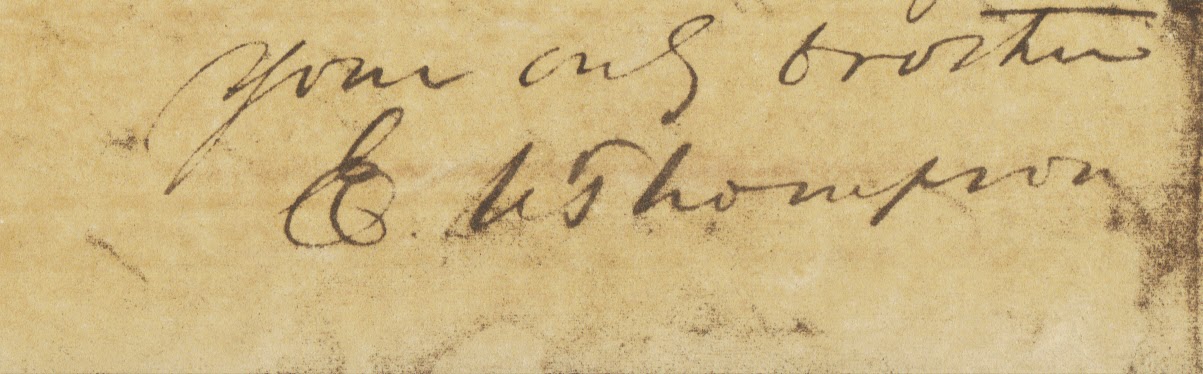 your only brother
E. W Thompson